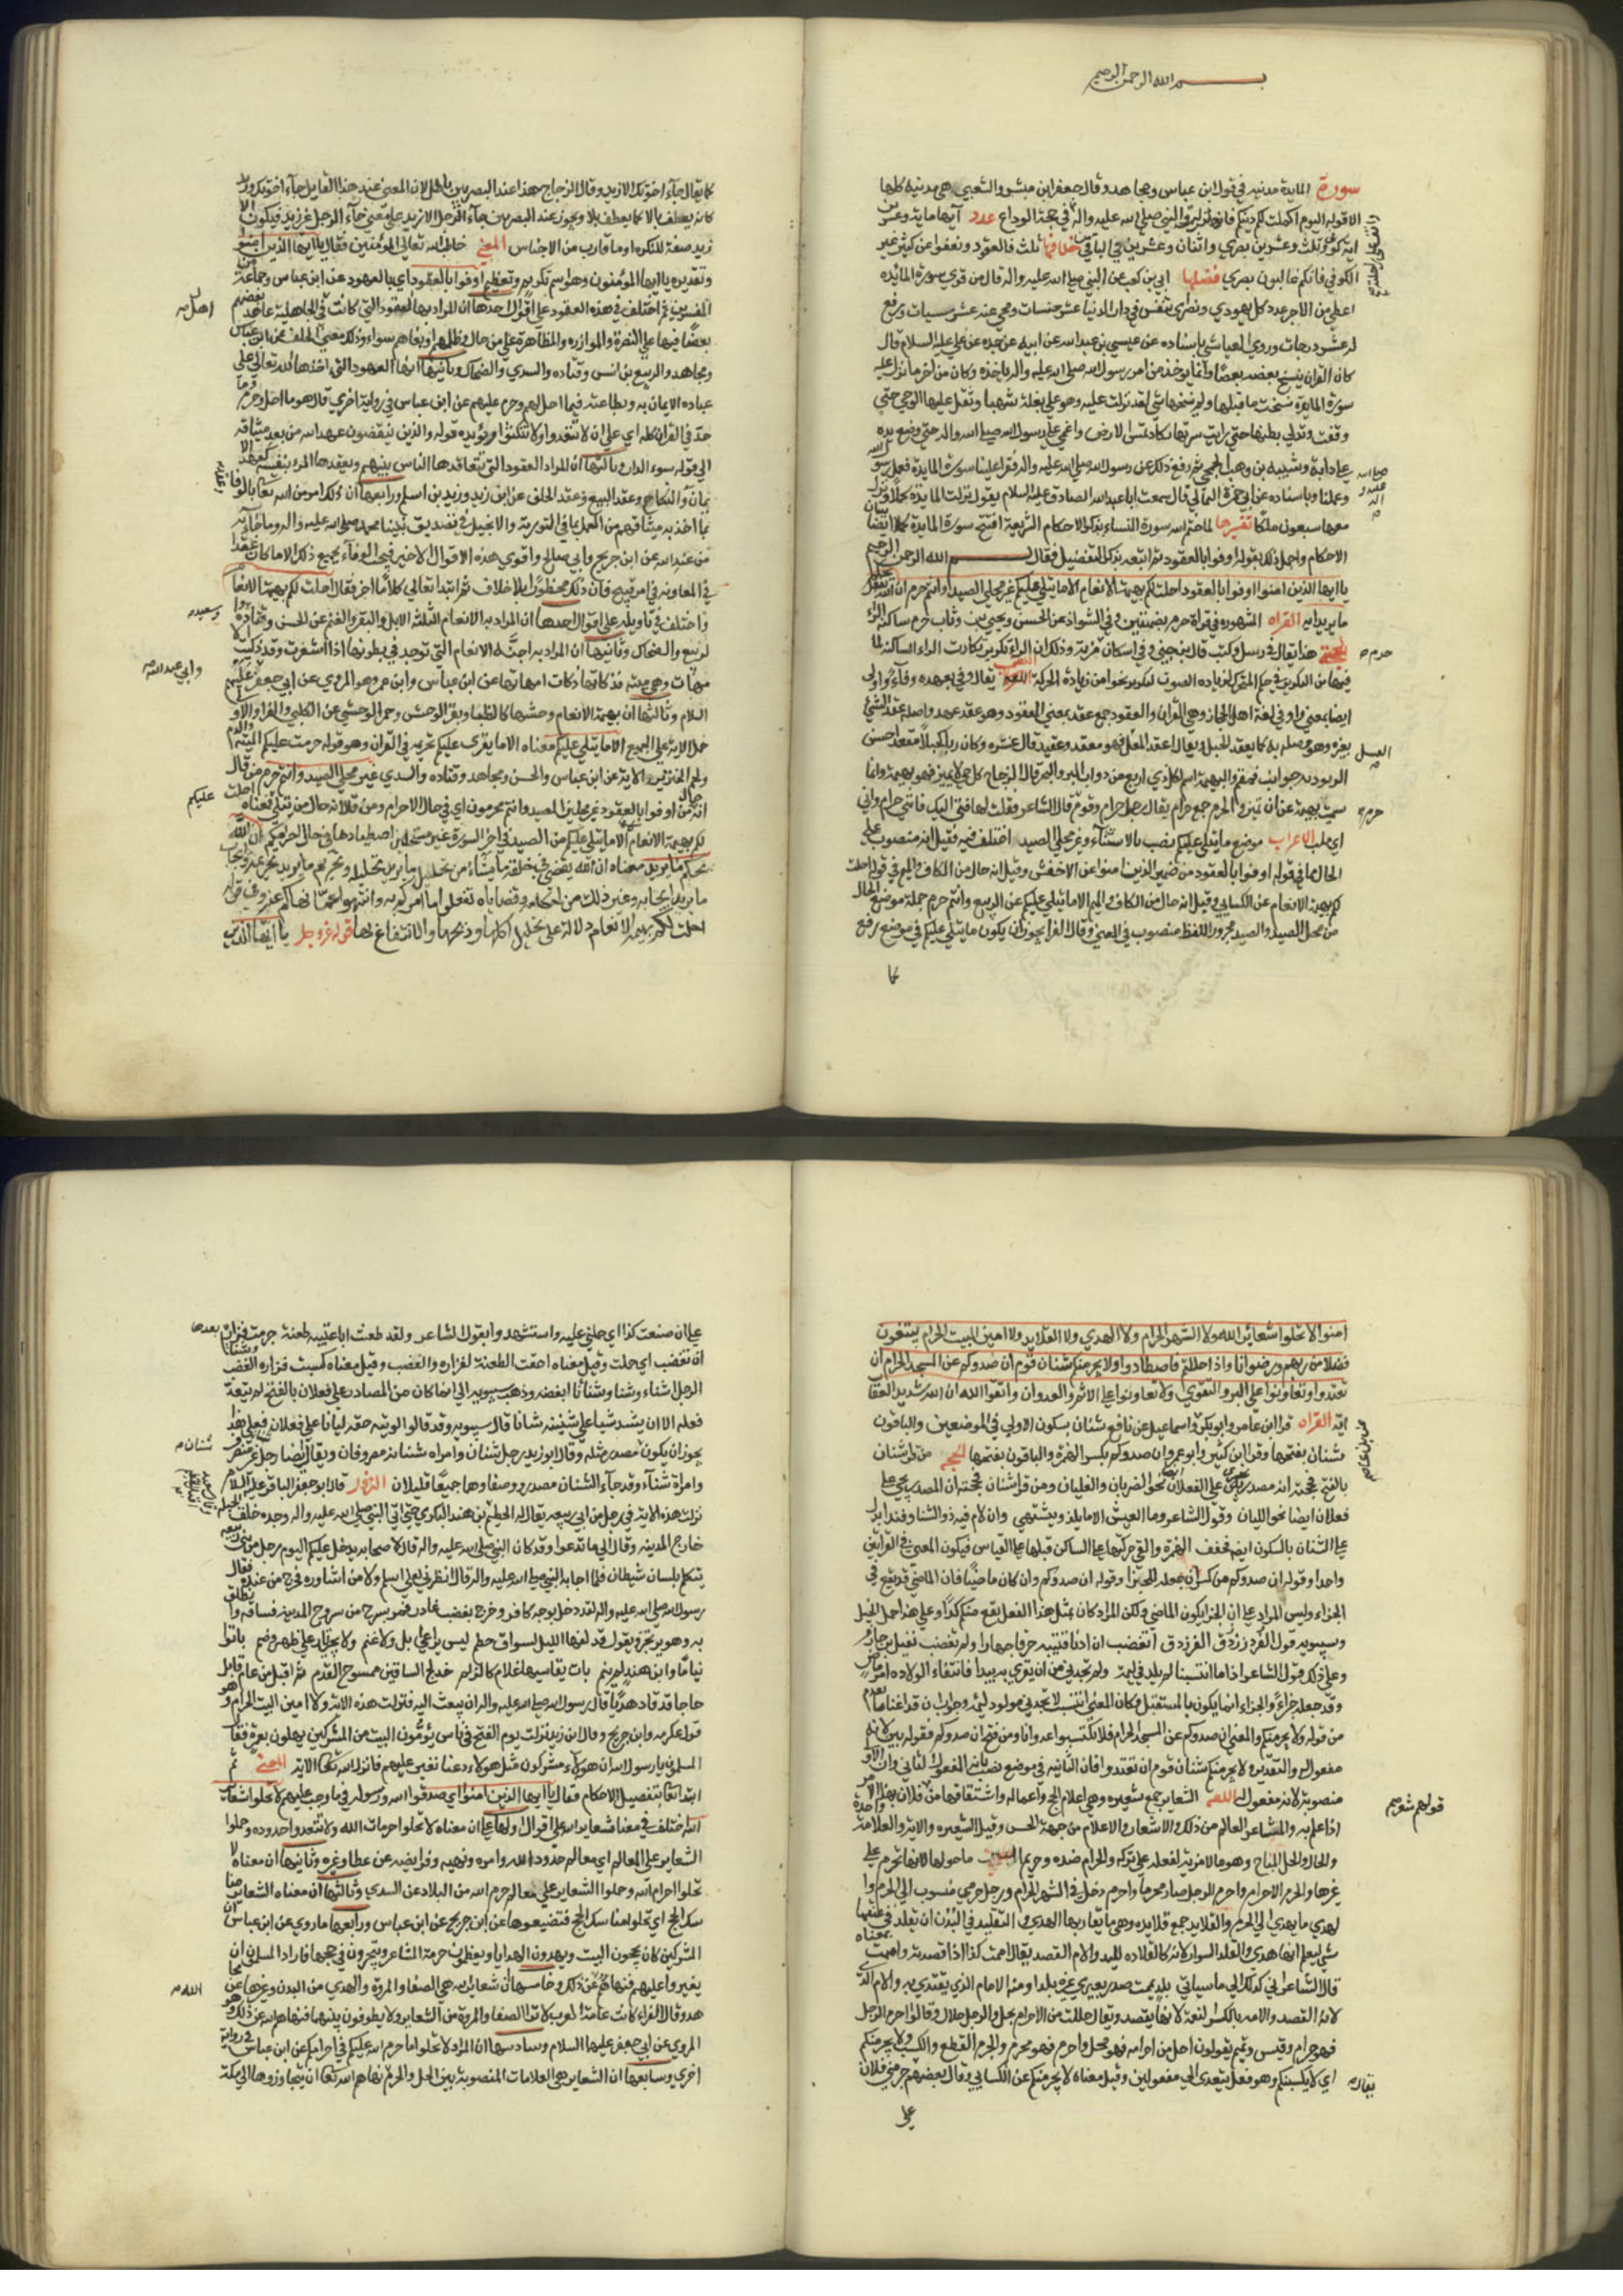 بسم الله الرحمن الرحيم
سورة المايدة مدنيه في قول ابن عباس ومجاهد وقال جعفر ابن مبشر والشعبي هي مدنيه كلها
الا قوله اليوم اكملت لكم دينكم فانه نزل والنبي صلى الله عليه واله في حجة الوداع عدد آيها مايه وعشرون
ايه كوفي وثلث وعشرين بصري واثنان وعشرين في الباقي خلافها ثلث فالعقود ونعفوا عن كثير غير
الكوفي فانكم غالبون بصري فضلها ابي بن كعب عن النبي صلى الله عليه واله قال من قرى سورة المائده
اعطي من الاجر عدد كل يهودي ونصراني يتنفس في دار الدنيا عشر حسنات ومحي عنه عشر سيات ورفع
له عشر درجات وروي العياشي باسناده عن عيسى بن عبد الله عن ابيه عن جده عن علي عليه السلام قال
كان القران ينسخ بعضه بعضا وانما يوخذ من امر رسول الله صلى الله عليه واله باخره وكان من اخر ما نزل عليه
سورة المايدة نسخت ما قبلها ولم ينسخها شي لقد نزلت عليه وهو على بغلة شهبا وثقل عليها الوحي حتى
وقفت وتدلي بطنها حتى رايت سرتها تكاد تمس الارض واغمي على رسول الله صلى الله واله حتى وضع يده
على ذوابة وشيبه بن وهب الجمحي ثم رفع ذلك عن رسول الله صلى الله عليه واله فقرا علينا سورة المايدة فعمل رسول الله
وعملنا وباسناده عن ابي حمزة الثمالي قال سمعت ابا عبد الله الصادق عليه السلام يقول نزلت المايدة كملا ونزل
معها سبعون ملكا تفسيرها لما ختم الله سورة النساء بذكر الاحكام الشريعة افتتح سورة المايدة ايضا ببيان
الاحكام واجمل ذلك بقوله اوفوا بالعقود ثم اتبعه بذكر التفصيل فقال بسم الله الرحمن الرحيم
يا ايها الذين امنوا اوفوا بالعقود احلت لكم بهيمة الانعام الا ما يتلى عليكم غير محلي الصيد وانتم حرم ان الله يحكم
ما يريد ايه القراه المشهوره في قراة حرم بضمتين وفي الشواذ عن الحسن ويحيى بن وثاب حرم ساكنة الراء
الحجة هذا يقال في رسل وكتب قال ابن جني وفي اسكان مزية وذلك ان الراء تكرير تكادت الراء الساكنة لما
فيها من التكرير في حكم المتحركة لزياده الصوت بالتكرير نحوا من زيادة الحركة اللغه يقال وفى بعهده وفاء واوفى
ايضا بمعنى واوفى لغة اهل الحجاز وهي القران والعقود جمع عقد بمعنى المعقود وهو عقد عهد واصله عقد الشئ
بغيره وهو وصله به كما يعقد الحبل ويقال اعقد العسل فهو معقد وعقيد قال عنتره وكان ربا او كحيلا معقدا حش
الوقود به جوانب قمقم والبهيمة اسم لكل ذي اربع من دواب البر والبحر قال الزجاج كل حي لا يميز فهو بهيمة وانما
سميت بهيمة عن ان تميز والحرم جمع حرام يقال رجل حرام وقوم حرم قال الشاعر فقلت لها فيئي اليك فانني حرام واني
اي ملب الاعراب موضع ما يتلى عليكم نصب بالاستثناء وغير محلي الصيد اختلف فيه فقيل انه منصوب على
الحال مما في قوله اوفوا بالعقود من ضمير الذين امنوا عن الاخفش وقيل انه حال من الكاف والميم في قوله احلت
لكم بهيمة الانعام عن الكسائي وقيل انه حال من الكاف والميم الا ما يتلى عليكم عن الربيع وانتم حرم جملة موضع الحال
من محلي الصيد والصيد مجرور اللفظ منصوب في المعنى وقال الفرا يجوز ان يكون ما يتلى عليكم في موضع رفع
كما
حرم
العسل
حرم
كما يقال جاء اخوتك الا زيد وقال الزجاج هذا عند البصريين باطل لان المعنى عند هذا القايل جاء اخوتك وزيد
كانه يعطف بالا كما يعطف بلا ويجوز عند البصريين جاء الرجل الا زيد على معنى جاء الرجل غير زيد فيكون الا
زيد صفة للنكره او ما قارب من الاجناس المعنى خاطب الله تعالى المؤمنين فقال يا ايها الذين امنوا
وتقديره يا ايها المؤمنون وهو اسم تكريم وتعظيم اوفوا بالعقود اي بالعهود عن ابن عباس وجماعة من
المفسرين ثم اختلف في هذه العقود على اقوال احدها ان المراد بها العقود التي كانت في الجاهلية عاهد بعضهم
بعضا فيها على النصرة والموازره والمظاهرة على من حاول ظلمهم او بغاهم سواء وذلك معنى الحلف عن ابن عباس
ومجاهد والربيع بن انس وقتاده والسدي والضحاك وثانيها انها العهود التي اخذها الله تعالى على
عباده الايمان به وبطاعته فيما احل لهم وحرم عليهم عن ابن عباس في رواية اخرى قال هو ما احل وحرم وما
حد في القران كله اي على ان لا تتعدوا ولا تنكثوا ويؤيده قوله والذين ينقضون عهد الله من بعد ميثاقه
الى قوله سوء الدار وثالثها ان المراد العقود التي يتعاقدها الناس بينهم ويعقدها المرء بنفسه كعقد
يمان والنكاح وعقد البيع وعقد الحلف عن ابن زيد وزيد بن اسلم ورابعها ان ذلك امر من الله تعالى بالوفا
بما اخذ به ميثاقهم من العمل بما في التورية والانجيل في تصديق نبينا محمد صلى الله عليه واله وما جاء به
من عند الله عن ابن جريج وابي صالح واقوى هذه الاقوال الاخير فيجب الوفاء بجميع ذلك الا ما كان عقدا
في المعاونة في امر قبيح فان ذلك محظور بلا خلاف ثم ابتدا تعالى كلاما اخر فقال احلت لكم بهيمة الانعام
واختلف في تاويله على اقوال احدها ان المراد به الانعام الثلثة الابل والبقر والغنم عن الحسن وقتاده
لربيع والضحاك وثانيها ان المراد به اجنة الانعام التي توجد في بطونها اذا اشعرت وقد ذكيت
مهات وهي ميتة فذكاتها ذكات امهاتها عن ابن عباس وابن عمر وهو المروي عن ابي جعفر عليهم
السلام وثالثها ان بهيمة الانعام وحشها كالظبا وبقر الوحش وحمر الوحشي عن الكلبي والفرا والاولى
حمل الاية على الجميع الا ما يتلى عليكم معناه الا ما يقرى عليكم تحريمه في القران وهو قوله حرمت عليكم الميتة الدم
ولحم الخنزير الاية عن ابن عباس والحسن ومجاهد وقتاده والسدي غير محلي الصيد وانتم حرم من قال
انه حال من اوفوا بالعقود غير محلين الصيد وانتم محرمون اي في حال الاحرام ومن قال انه حال من احلت فمعناه
لكم بهيمة الانعام الا ما يتلى عليكم من الصيد في اخر السورة غير مستحلين اصطيادها في حال احرامكم ان الله
يحكم ما يريد معناه ان الله يقضي في خلقه ما يشاء من تحليل ما يريد تحليله وتحريم ما يريد تحريمه وايجاب
ما يريد ايجابه وغير ذلك من احكامه وقضاياه فافعلوا ما امركم به وانتهوا عما نهاكم عنه وفي قوله
احلت لكم بهيمة الانعام دلالة على تحليل اكلها وذبحها والانتفاع بها قوله عز وجل يا ايها الذين
اهل
وابي عبد الله
عليكم
امنوا لا تحلوا شعائر الله ولا الشهر الحرام ولا الهدي ولا القلايد ولا امين البيت الحرام يبتغون
فضلا من ربهم ورضوانا واذا حللتم فاصطادوا ولا يجرمنكم شنان قوم ان صدوكم عن المسجد الحرام ان
تعتدوا وتعاونوا على البر والتقوى ولا تعاونوا على الاثم والعدوان واتقوا الله ان الله شديد العقاب
ايه القراه قرا ابن عامر وابو بكر واسماعيل عن نافع شنان بسكون الاولى في الموضعين والباقون
شنان بفتحها وقرا ابن كثير وابو عمرو ان صدوكم بكسر الهمزة والباقون بفتحها الحجه من قرا شنان
بالفتح فحجته انه مصدر على الفعلان نحو الضربان والغليان ومن قرا شنان فحجته ان المصدر يجي على
فعلان ايضا نحو الليان وقول الشاعر وما العيش الا ما يلذ ويشتهي وان لام فيه ذو الشنا وفندا يدل
على الشنان بالسكون ايضا فخفف الهمزة والقى حركتها على الساكن قبلها على القياس فيكون المعنى في القرائتين
واحدا وقوله ان صدوكم من كسر ان جعله للجزا وقوله ان صدوكم وان كان ماضيا فان الماضي قد يقع في
الجزاء وليس المراد على ان الجزا يكون الماضي ولكن المراد كان مثل هذا الفعل يقع منكم كذا وعلى هذا حمل الخليل
وسيبويه قول الفرزدق اتغضب ان اذنا قتيبه حزتا جهارا ولم تغضب لقتل ابن حازم
وعلى ذلك قول الشاعر اذا ما انتسبنا لم تلدني لئيمة ولم تجدي من ان تقري به بدا فانتفاء الولاده امر ماض
وقد جعله جزاء والجزاء انما يكون بالمستقبل فكان المعنى ان ننتسب لا تجدني مولود لئيمه وجواب ان قد اغنا ما تقدم
من قوله ولا يجرمنكم والمعنى ان صدوكم عن المسجد الحرام فلا تكتسبوا عدوانا ومن فتح ان صدوكم فقوله بين لانه
مفعول له والتقدير ولا يجرمنكم شنان قوم ان تعتدوا فان الثانيه في موضع نصب بانه المفعول الثاني وان الاولى
منصوبة لانه مفعول له اللغه الشعاير جمع شعيره وهي اعلام الحج واعماله واشتقاقها من قولهم فلان بهذا الامر
اذا علم به والمشاعر المعالم من ذلك والاشعار والاعلام من جهة الحس وقيل الشعيره والاية والعلامة واحدة
والحلال والحل المباح وهو ما لا مزية لفعله على تركه والحرام ضده وحريم البيت ما حولها لانها تحرم على
غيرها والحرم الاحرام واحرم الرجل صار محرما واحرم دخل في الشهر الحرام ورجل حرمي منسوب الى الحرم وا
لهدي ما يهدى الى الحرم والقلايد جمع قلاده وهي ما يقلد بها الهدي والتقليد في البدن ان يقلد في عنقها
شي ليعلم انها هدي والقلد السوار لانه كالقلاده لليد والام القصد يقال اممت كذا اذا قصدته واممت بمعناه
قال الشاعر
لانه القصد والامه بالكسر النعمة لانها تقصد ويقال حللت من الاحرام تحل والرجل حلال وقالوا احرم الرجل
فهو حرام وقيس وتميم يقولون احل من احرامه فهو محل واحرم فهو محرم والجرم القطع والكسب ولا يجرمنكم
اي لا يكسبنكم وهو فعل يتعدى الى مفعولين وقيل معناه لا يجرمنكم عن الكسائي وقال بعضهم جرمني فلان
على
يقال
على ان صنعت كذا اي حملني عليه واستشهدوا بقول الشاعر ولقد طعنت ابا عيينه طعنة جرمت فزارة بعدها
ان تغضب اي حملت وقيل معناه احقت الطعنة لفزاره والغضب وقيل معناه كسبت فزاره الغضب
الرجل اشناه وشنا وشنانا ابغضه وذهب سيبويه الى ان ما كان من المصادر على فعلان بالفتح لم يتعد
فعله الا ان يشذ شيا على شنئته شنانا قال سيبويه وقد قالوا لويته حقه ليانا على فعلان فعلى هذا
يجوز ان يكون مصدر مثله وقال ابو زيد رجل شنان وامراه شنانه مصروفان ويقال ايضا رجل غير منصرف
وامراة شناء وقد جاء الشنان مصدر ووصفا وهما جميعا قليلان النزول قال ابو جعفر الباقر عليه السلام
نزلت هذه الاية في رجل من ابي ربيعه يقال له الحطيم بن هند البكري حتى اتى النبي صلى الله عليه واله وحده خلف خيله
خارج المدينه وقال الى ما تدعوا وقد كان النبي صلى الله عليه واله قال لاصحابه يدخل عليكم اليوم رجل من بني ربيعة
يتكلم بلسان شيطان فلما اجابه النبي صلى الله عليه واله قال انظرني لعلي اسلم ولي من اشاوره فخرج من عنده فقال
رسول الله صلى الله عليه واله لقد دخل بوجه كافر وخرج بعقب غادر فمر بسرح من سروح المدينه فساقه وانطلق
به وهو يرتجز ويقول قد لفها الليل بسواق حطم ليس براعي ابل ولا غنم ولا بجزار على ظهر وضم باتوا
نياما وابن هند لم ينم بات يقاسيها غلام كالزلم خدلج الساقين ممسوح القدم ثم اقبل من عام قابل
حاجا قد قلد هديا فاراد رسول الله صلى الله عليه واله ان يبعث اليه فنزلت هذه الاية ولا امين البيت الحرام وهو
قول عكرمه وابن جريج وقال ابن زيد نزلت يوم الفتح في ناس يؤمون البيت من المشركين يهلون بعمرة فقال
المسلمون يا رسول الله ان هولاء مشركون مثل هولاء دعنا نغير عليهم فانزل الله تعالى الاية المعنى ثم
ابتدا تعالى بتفصيل الاحكام فقال يا ايها الذين امنوا اي صدقوا الله ورسوله فيما اوجب عليهم لا تحلوا شعائر
الله اختلف في معنا شعاير الله على اقوال اولها على ان معناه لا تحلوا حرمات الله ولا تتعدوا حدوده وحملوا
الشعاير على المعالم اي معالم حدود الله وامره ونهيه وفرايضه عن عطا وغيره وثانيها ان معناه لا
تحلوا حرم الله وحملوا الشعاير على معالم حرم الله من البلاد عن السدي وثالثها ان معناه الشعاير منا
سك الحج اي لا تحلوا مناسك الحج فتضيعوها عن ابن جريج عن ابن عباس ورابعها ما روي عن ابن عباس ان
المشركين كان يحجون البيت ويهدون الهدايا ويعظمون حرمة المشاعر ويتجرون في حجها فاراد المسلمون ان
يغيروا عليهم فنهاهم عن ذلك وخامسها ان شعاير الله هي الصفا والمروة والهدي من البدن وغيرها عن مجا
هد وقال الفراء كانت عامة العرب لا ترى الصفا والمروة من الشعاير ولا يطوفون بينهما فنهاهم الله عن ذلك وهو
المروي عن ابي جعفر عليه السلام وسادسها ان المراد لا تحلوا ما حرم الله عليكم في احرامكم عن ابن عباس في رواية
اخرى وسابعها ان الشعاير هي العلامات المنصوبة بين الحل والحرم نهاهم الله تعالى ان يتجاوزوها الى مكة
شنان
الله